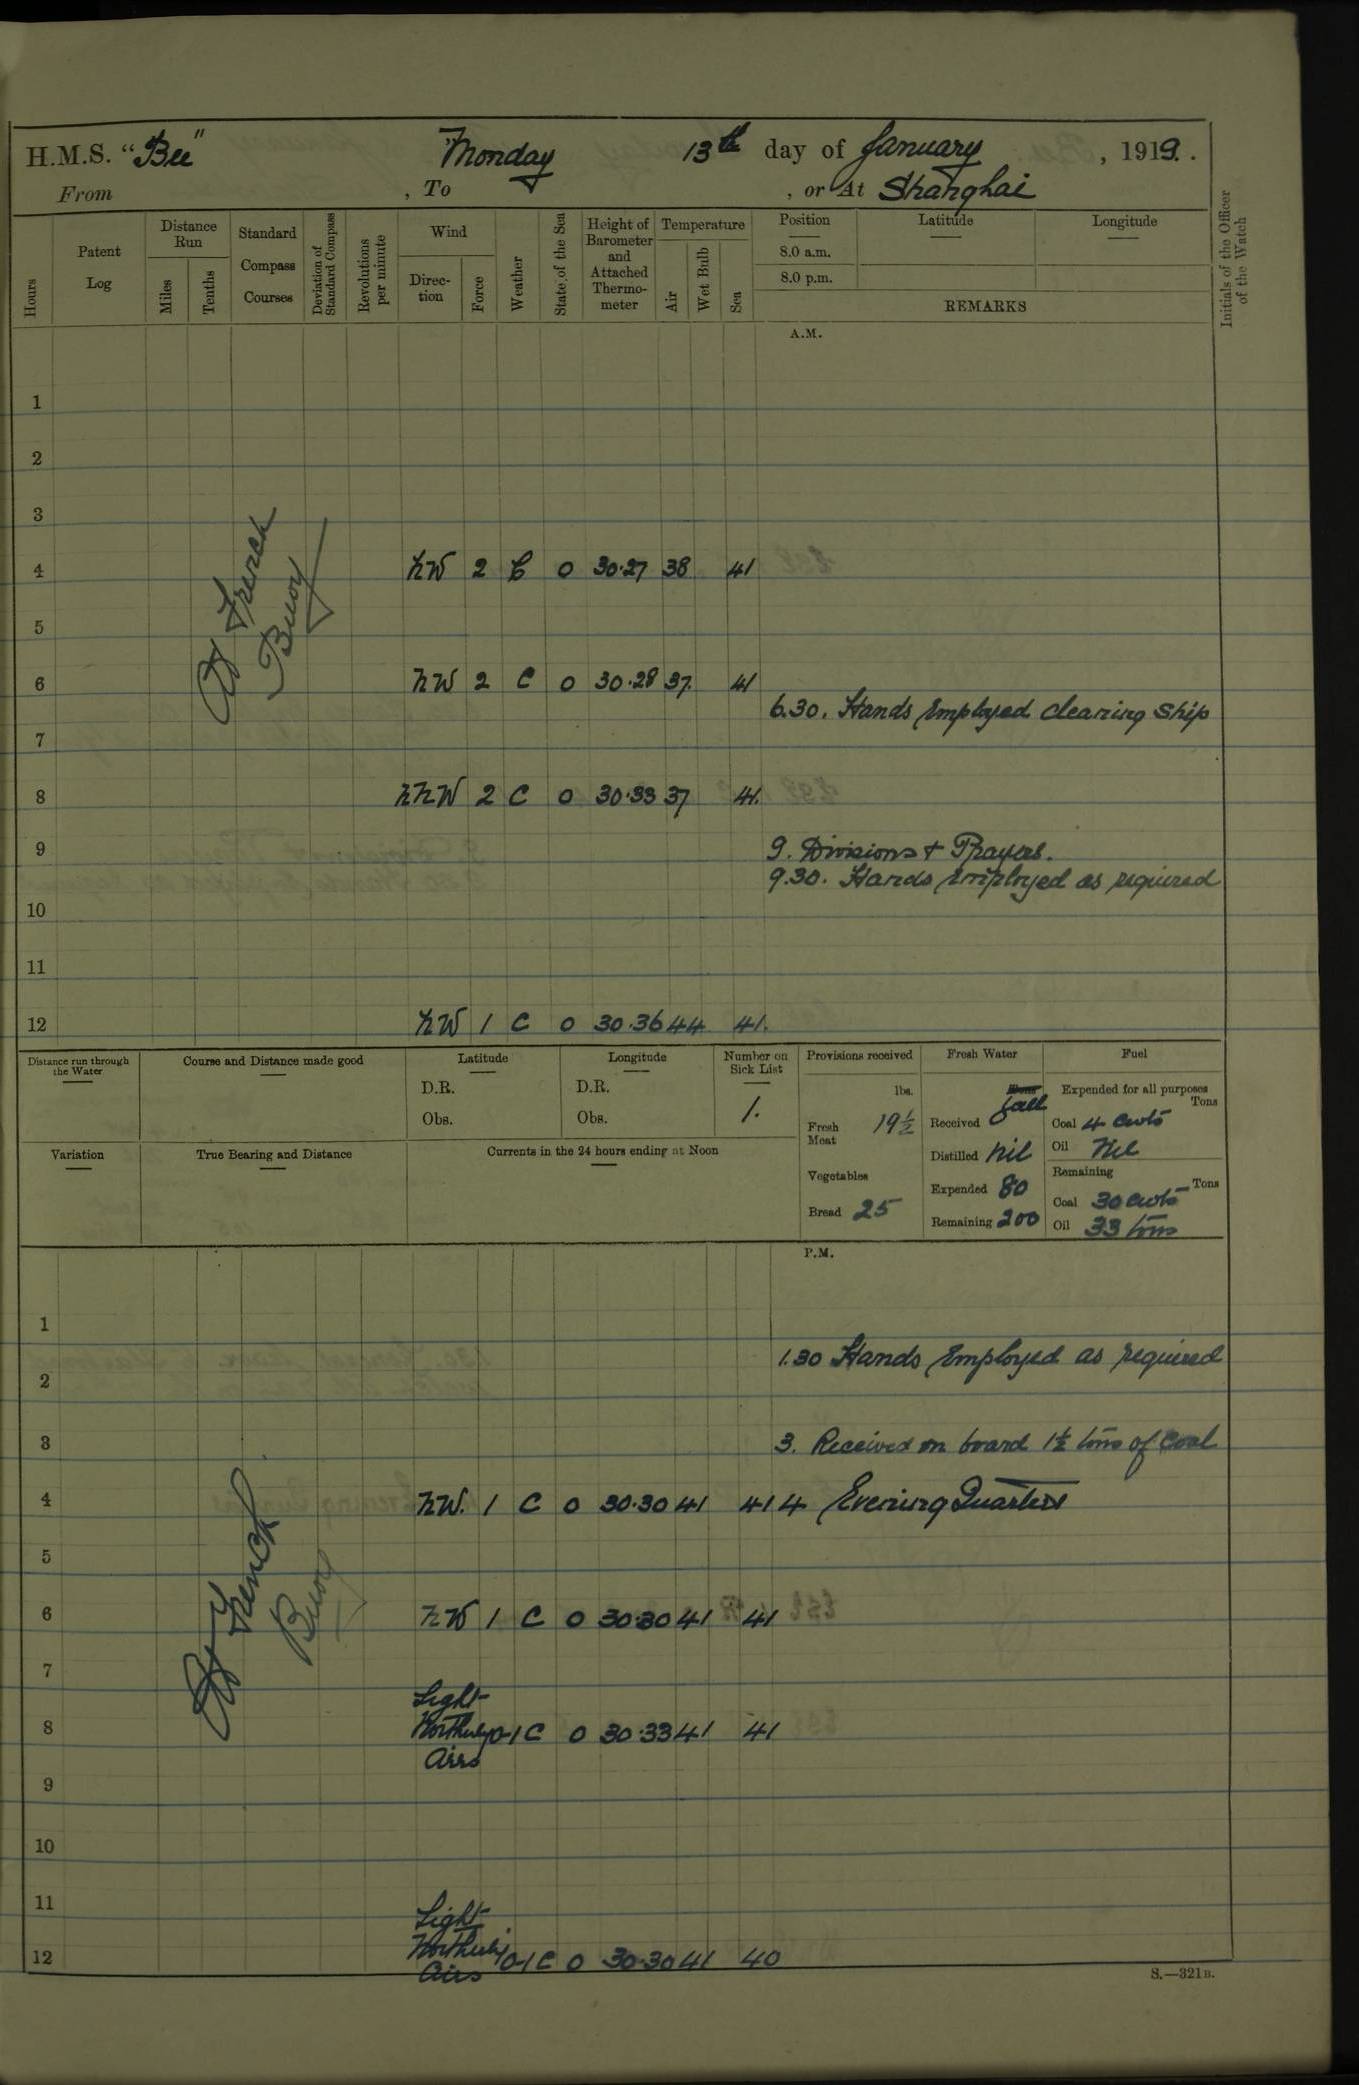 H.M.S. "Bee" Monday 13th day of January, 1919.
From , To , or At Shanghai
Hours
Patent Log
Distance Run
Miles
Tenths
Standard Compass Courses
Deviation of Standard Compass
Revolutions per minute
Wind
Direction
Force
Weather
State of the Sea
Height of Barometer and Attached Thermometer
Temperature
Air
Wet Bulb
Sea
Position
Latitude
Longitude
8.0 a.m.
8.0 p.m.
REMARKS
Initials of the Officer of the Watch
A.M.
1
2
3
At French Buoy
4 NW 2 C 0 30.27 38 41
5
6 NW 2 C 0 30.28 37. 41
6.30. Hands Employed cleaning Ship
7
8 NNW 2 C 0 30.33 37 41.
9 9. Divisions + Prayers.
9.30. Hands employed as required
10
11
12 NW 1 C 0 30.36 44 41.
Distance run through the Water
Course and Distance made good
Latitude
D.R.
Obs.
Longitude
D.R.
Obs.
Number on Sick List
1.
Provisions received
lbs.
Fresh Meat 19½
Vegetables
Bread 25
Fresh Water
Tons
Galls
Received
Distilled Nil
Expended 80
Remaining 200
Fuel
Expended for all purposes
Tons
Coal 4 cwts
Oil Nil
Remaining
Tons
Coal 30 cwts
Oil 33 tons
Variation
True Bearing and Distance
Currents in the 24 hours ending at Noon
P.M.
1
1.30 Hands Employed as required
2
3 3. Received on board 1½ tons of Coal
At French Buoy
4 NW. 1 C 0 30.30 41 41 4 Evening Quarters
5
6 NW 1 C 0 30.30 41 41
7
8 Light Northerly Airs 0-1 C 0 30.33 41 41
9
10
11
12 Light Northerly Airs 0-1 C 0 30.30 41 40
S.—321B.